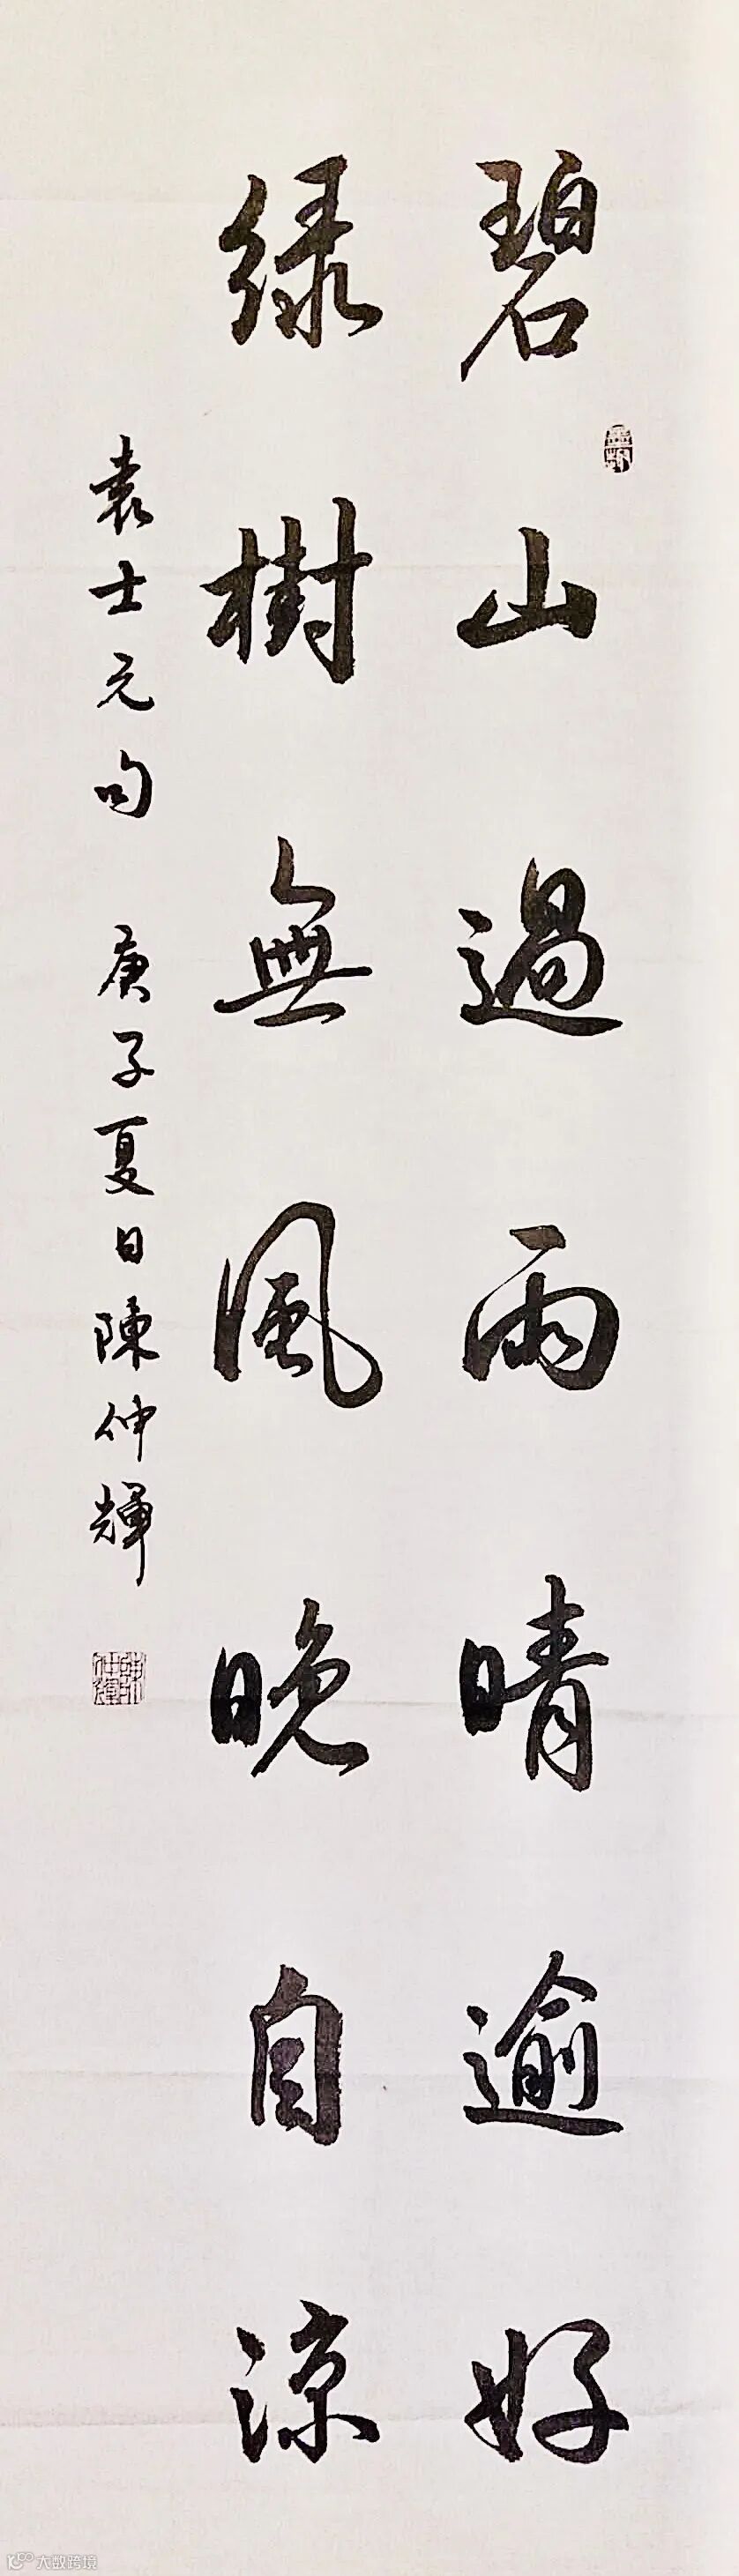 碧山過雨晴逾好
绿樹無風晚自涼
袁士元句 庚子夏日陳仲輝
大数跨境